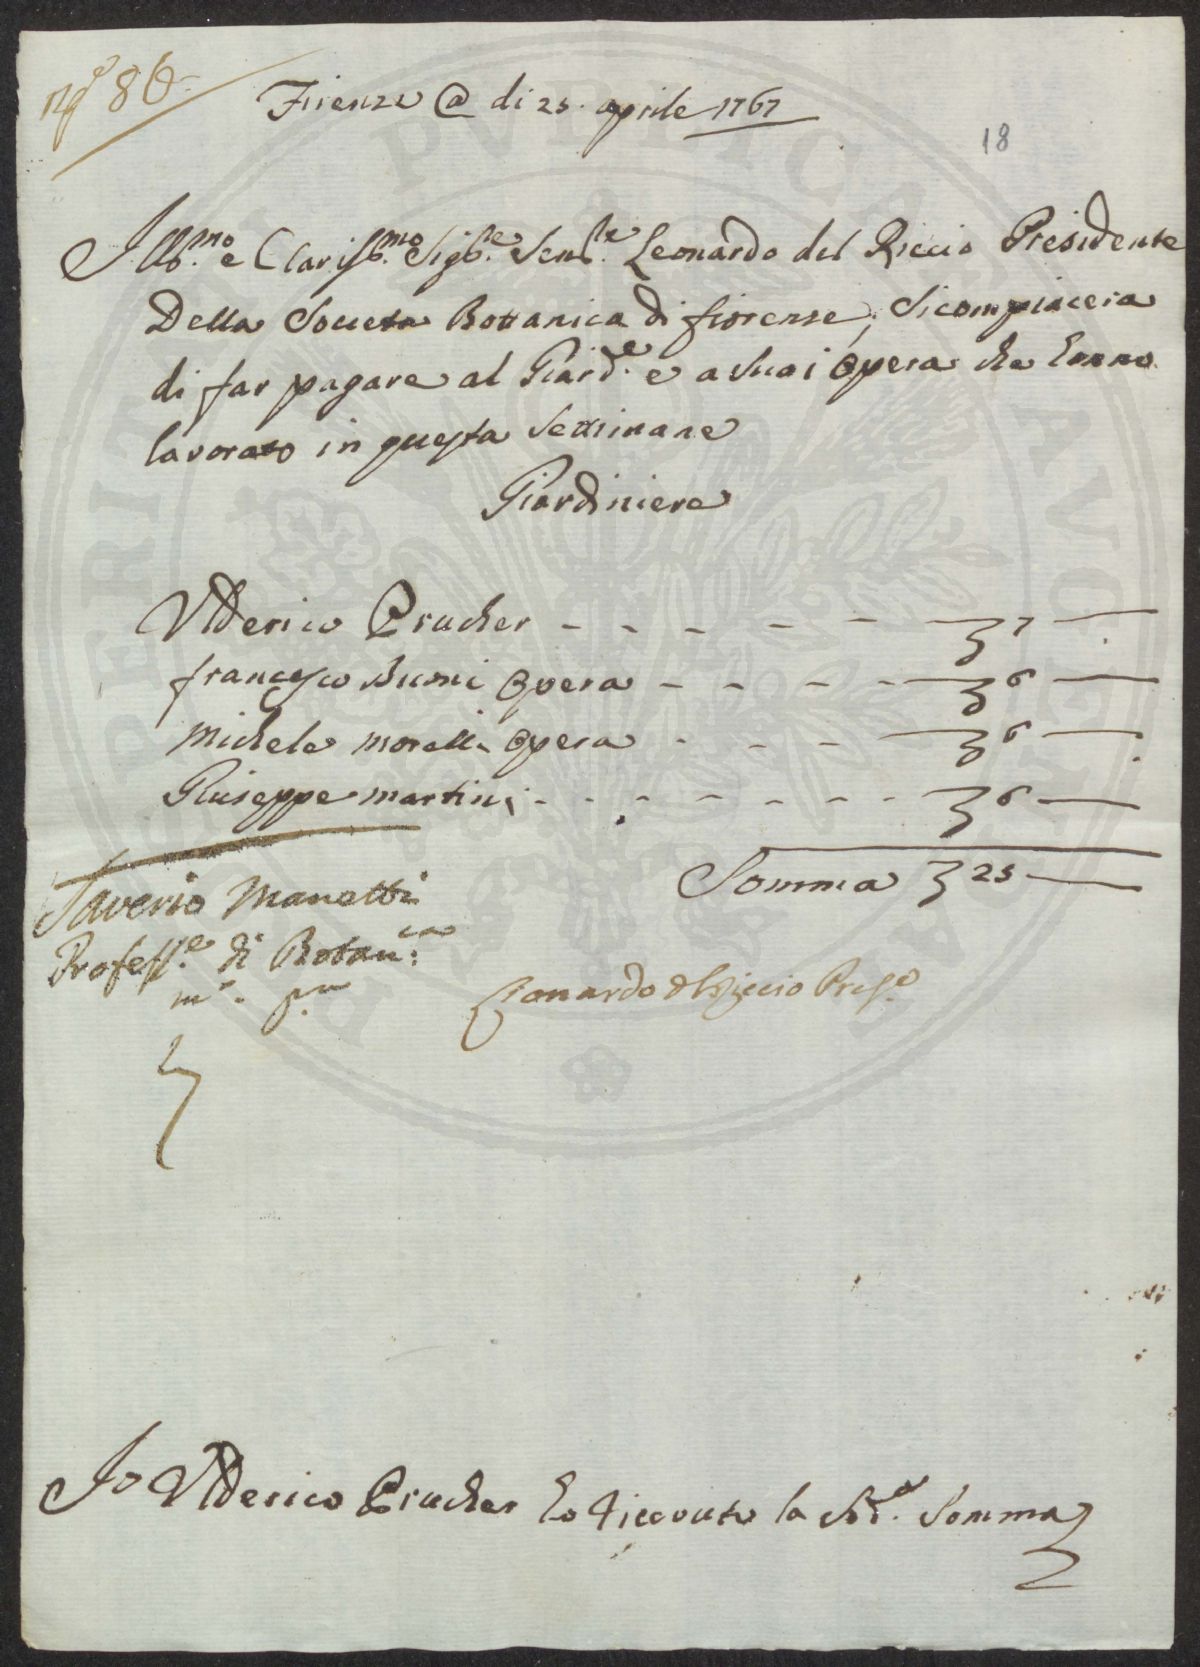 nq.e 86
Firenze @ di 25. aprile 1767
18
Ill.mo e Clariss.mo Sig.re Sen.re Leonardo del Riccio Presidente
Della Societa Bottanica di fiorense, Sicompiacera
di far pagare al Giard.e e a Suoi Opera che hanno
lavorato in questa Settimane
Giardiniere
Vlderico Prucher - - - - - - 7 —
francesco Bumi Opera - - - - 6 —
Michele morelli Opera - - - 6 —
Giuseppe martini - - - - - - - 6 —
Somma 25 —
Saverio Manetti
Profess.e di Botan.ca
m.o p.a
Leonardo del Riccio Pres.e
Io Vlderico Prucher ho riceouto la Sud.a Somma
PVBLICAE